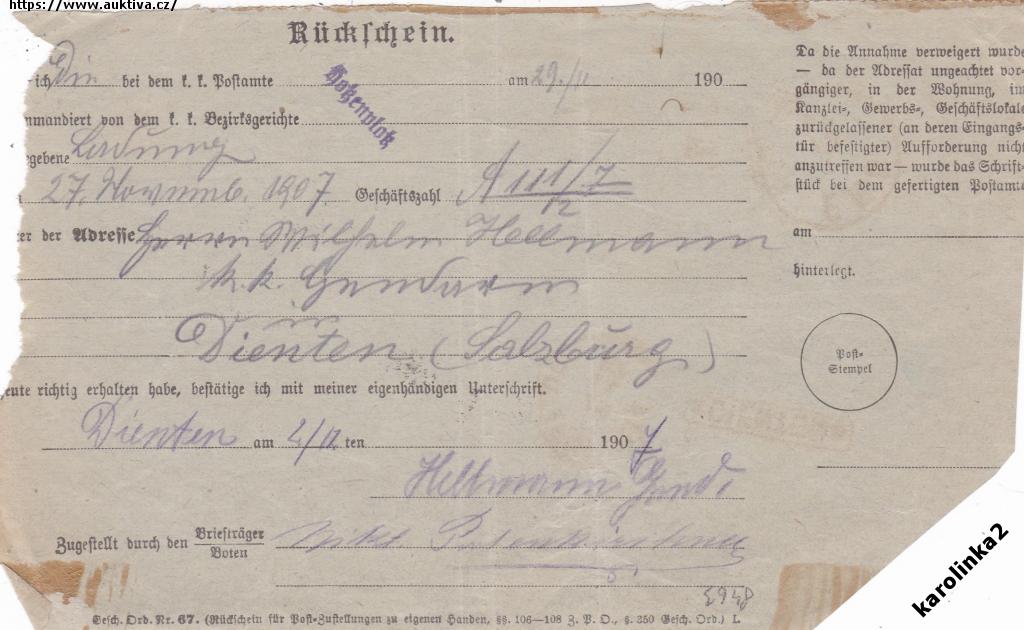 https://www.auktiva.cz/
Rückschein.
ich Die bei dem k. k. Postamte am 29./11 190
Hotzenplotz
mmandiert von dem k. k. Bezirksgerichte
egebene Ladung
27. Novemb. 1907 Geschäftszahl A 111/7
12
ter der Adresse Herrn Wilhelm Hellmann
k. k. Gendarm
Dienten (Salzburg)
eute richtig erhalten habe, bestätige ich mit meiner eigenhändigen Unterschrift.
Dienten am ten 190 7
Hellmann Gend.
Zugestellt durch den Briefträger
Boten
5948
Gesch. Ord. Nr. 67. (Rückschein für Post-Zustellungen zu eigenen Handen, §§. 106—108 Z. P. O., §. 350 Gesch. Ord.) L.
Da die Annahme verweigert wurde
— da der Adressat ungeachtet vor-
gängiger, in der Wohnung, im
Kanzlei-, Gewerbs-, Geschäftslokale
zurückgelassener (an deren Eingangs-
tür befestigter) Aufforderung nicht
anzutreffen war — wurde das Schrift-
stück bei dem gefertigten Postamte
am
hinterlegt.
Post-
Stempel
karolinka2